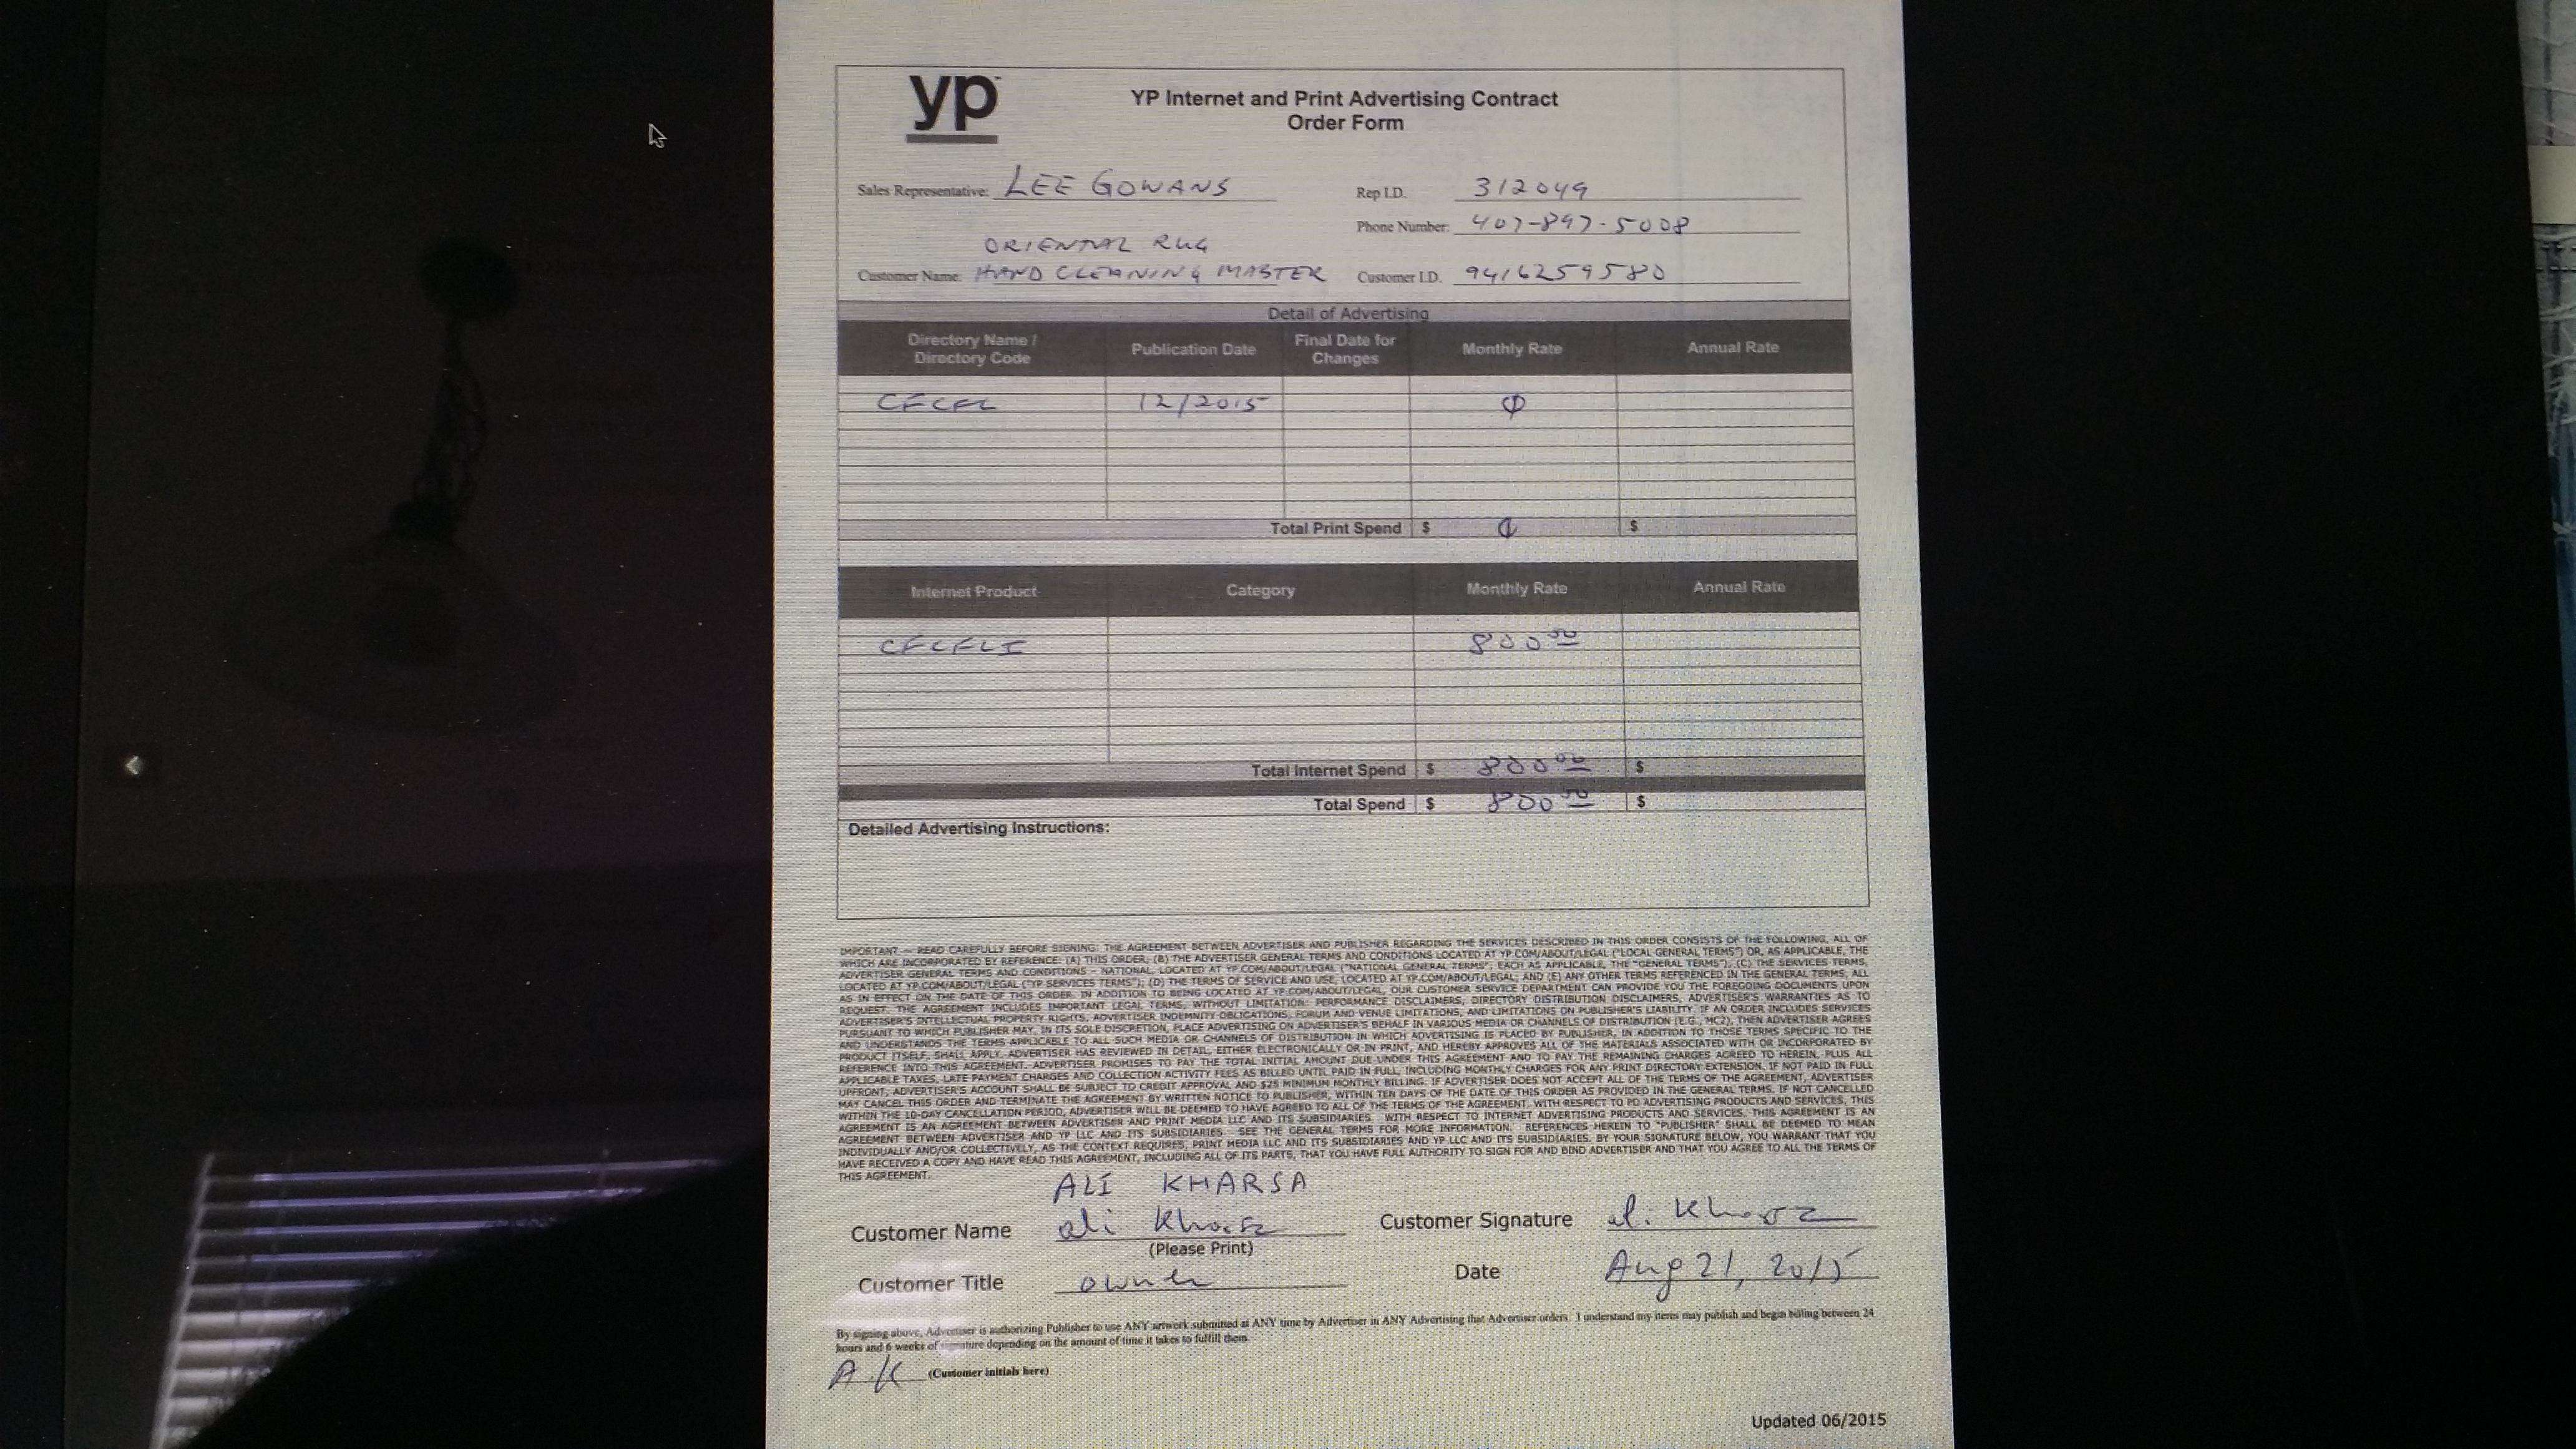 yp
YP Internet and Print Advertising Contract
Order Form
Sales Representative: LEE GOWANS
Rep I.D. 312049
Phone Number: 407-897-5008
ORIENTAL RUG
Customer Name: HAND CLEANING MASTER
Customer I.D. 9416259580
Detail of Advertising
Directory Name / Directory Code Publication Date Final Date for Changes Monthly Rate Annual Rate
CFCFL 12/2015 Φ
Total Print Spend $ $
Internet Product Category Monthly Rate Annual Rate
CFCFLI 800.00
Total Internet Spend $ 800.00 $
Total Spend $ 800.00 $
Detailed Advertising Instructions:
IMPORTANT – READ CAREFULLY BEFORE SIGNING: THE AGREEMENT BETWEEN ADVERTISER AND PUBLISHER REGARDING THE SERVICES DESCRIBED IN THIS ORDER CONSISTS OF THE FOLLOWING, ALL OF
WHICH ARE INCORPORATED BY REFERENCE: (A) THIS ORDER; (B) THE ADVERTISER GENERAL TERMS AND CONDITIONS LOCATED AT YP.COM/ABOUT/LEGAL ("LOCAL GENERAL TERMS") OR, AS APPLICABLE, THE
ADVERTISER GENERAL TERMS AND CONDITIONS – NATIONAL, LOCATED AT YP.COM/ABOUT/LEGAL ("NATIONAL GENERAL TERMS"; EACH AS APPLICABLE, THE "GENERAL TERMS"); (C) THE SERVICES TERMS,
LOCATED AT YP.COM/ABOUT/LEGAL ("YP SERVICES TERMS"); (D) THE TERMS OF SERVICE AND USE, LOCATED AT YP.COM/ABOUT/LEGAL; AND (E) ANY OTHER TERMS REFERENCED IN THE GENERAL TERMS, ALL
AS IN EFFECT ON THE DATE OF THIS ORDER. IN ADDITION TO BEING LOCATED AT YP.COM/ABOUT/LEGAL, OUR CUSTOMER SERVICE DEPARTMENT CAN PROVIDE YOU THE FOREGOING DOCUMENTS UPON
REQUEST. THE AGREEMENT INCLUDES IMPORTANT LEGAL TERMS, WITHOUT LIMITATION: PERFORMANCE DISCLAIMERS, DIRECTORY DISTRIBUTION DISCLAIMERS, ADVERTISER'S WARRANTIES AS TO
ADVERTISER'S INTELLECTUAL PROPERTY RIGHTS, ADVERTISER INDEMNITY OBLIGATIONS, FORUM AND VENUE LIMITATIONS, AND LIMITATIONS ON PUBLISHER'S LIABILITY. IF AN ORDER INCLUDES SERVICES
PURSUANT TO WHICH PUBLISHER MAY, IN ITS SOLE DISCRETION, PLACE ADVERTISING ON ADVERTISER'S BEHALF IN VARIOUS MEDIA OR CHANNELS OF DISTRIBUTION (E.G., MC2), THEN ADVERTISER AGREES
AND UNDERSTANDS THE TERMS APPLICABLE TO ALL SUCH MEDIA OR CHANNELS OF DISTRIBUTION IN WHICH ADVERTISING IS PLACED BY PUBLISHER, IN ADDITION TO THOSE TERMS SPECIFIC TO THE
PRODUCT ITSELF, SHALL APPLY. ADVERTISER HAS REVIEWED IN DETAIL, EITHER ELECTRONICALLY OR IN PRINT, AND HEREBY APPROVES ALL OF THE MATERIALS ASSOCIATED WITH OR INCORPORATED BY
REFERENCE INTO THIS AGREEMENT. ADVERTISER PROMISES TO PAY THE TOTAL INITIAL AMOUNT DUE UNDER THIS AGREEMENT AND TO PAY THE REMAINING CHARGES AGREED TO HEREIN, PLUS ALL
APPLICABLE TAXES, LATE PAYMENT CHARGES AND COLLECTION ACTIVITY FEES AS BILLED UNTIL PAID IN FULL, INCLUDING MONTHLY CHARGES FOR ANY PRINT DIRECTORY EXTENSION. IF NOT PAID IN FULL
UPFRONT, ADVERTISER'S ACCOUNT SHALL BE SUBJECT TO CREDIT APPROVAL AND $25 MINIMUM MONTHLY BILLING. IF ADVERTISER DOES NOT ACCEPT ALL OF THE TERMS OF THE AGREEMENT, ADVERTISER
MAY CANCEL THIS ORDER AND TERMINATE THE AGREEMENT BY WRITTEN NOTICE TO PUBLISHER, WITHIN TEN DAYS OF THE DATE OF THIS ORDER AS PROVIDED IN THE GENERAL TERMS. IF NOT CANCELLED
WITHIN THE 10-DAY CANCELLATION PERIOD, ADVERTISER WILL BE DEEMED TO HAVE AGREED TO ALL OF THE TERMS OF THE AGREEMENT. WITH RESPECT TO PD ADVERTISING PRODUCTS AND SERVICES, THIS
AGREEMENT IS AN AGREEMENT BETWEEN ADVERTISER AND PRINT MEDIA LLC AND ITS SUBSIDIARIES. WITH RESPECT TO INTERNET ADVERTISING PRODUCTS AND SERVICES, THIS AGREEMENT IS AN
AGREEMENT BETWEEN ADVERTISER AND YP LLC AND ITS SUBSIDIARIES. SEE THE GENERAL TERMS FOR MORE INFORMATION. REFERENCES HEREIN TO "PUBLISHER" SHALL BE DEEMED TO MEAN
INDIVIDUALLY AND/OR COLLECTIVELY, AS THE CONTEXT REQUIRES, PRINT MEDIA LLC AND ITS SUBSIDIARIES AND YP LLC AND ITS SUBSIDIARIES. BY YOUR SIGNATURE BELOW, YOU WARRANT THAT YOU
HAVE RECEIVED A COPY AND HAVE READ THIS AGREEMENT, INCLUDING ALL OF ITS PARTS, THAT YOU HAVE FULL AUTHORITY TO SIGN FOR AND BIND ADVERTISER AND THAT YOU AGREE TO ALL THE TERMS OF
THIS AGREEMENT.
ALI KHARSA
Customer Name ali Kharsa
Customer Signature ali Kharsa
(Please Print)
Customer Title owner
Date Aug 21, 2015
By signing above, Advertiser is authorizing Publisher to use ANY artwork submitted at ANY time by Advertiser in ANY Advertising that Advertiser orders. I understand my items may publish and begin billing between 24
hours and 6 weeks of signature depending on the amount of time it takes to fulfill them.
A.K (Customer initials here)
Updated 06/2015